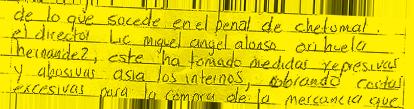 de lo que sucede en el penal de chetumal.
el director Lic miguel angel alonso orihuela
hernandez, este ha tomado medidas represivas
y abusivas asia los internos, cobrando costos
excesivas para la compra de la mercancia que